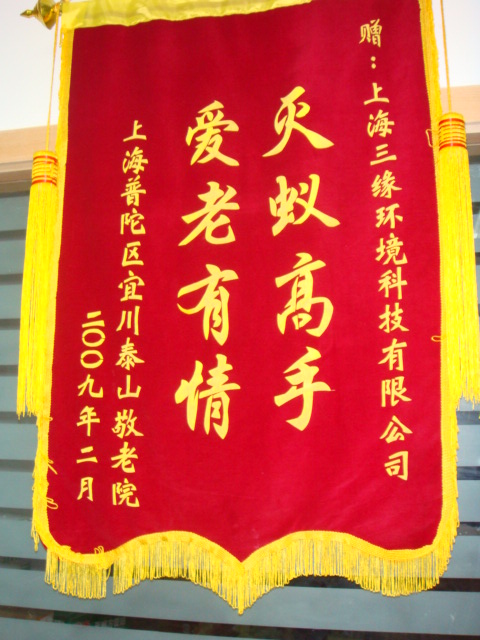 赠:上海三缘环境科技有限公司
灭蚁高手
爱老有情
上海普陀区宜川泰山敬老院
二〇〇九年二月